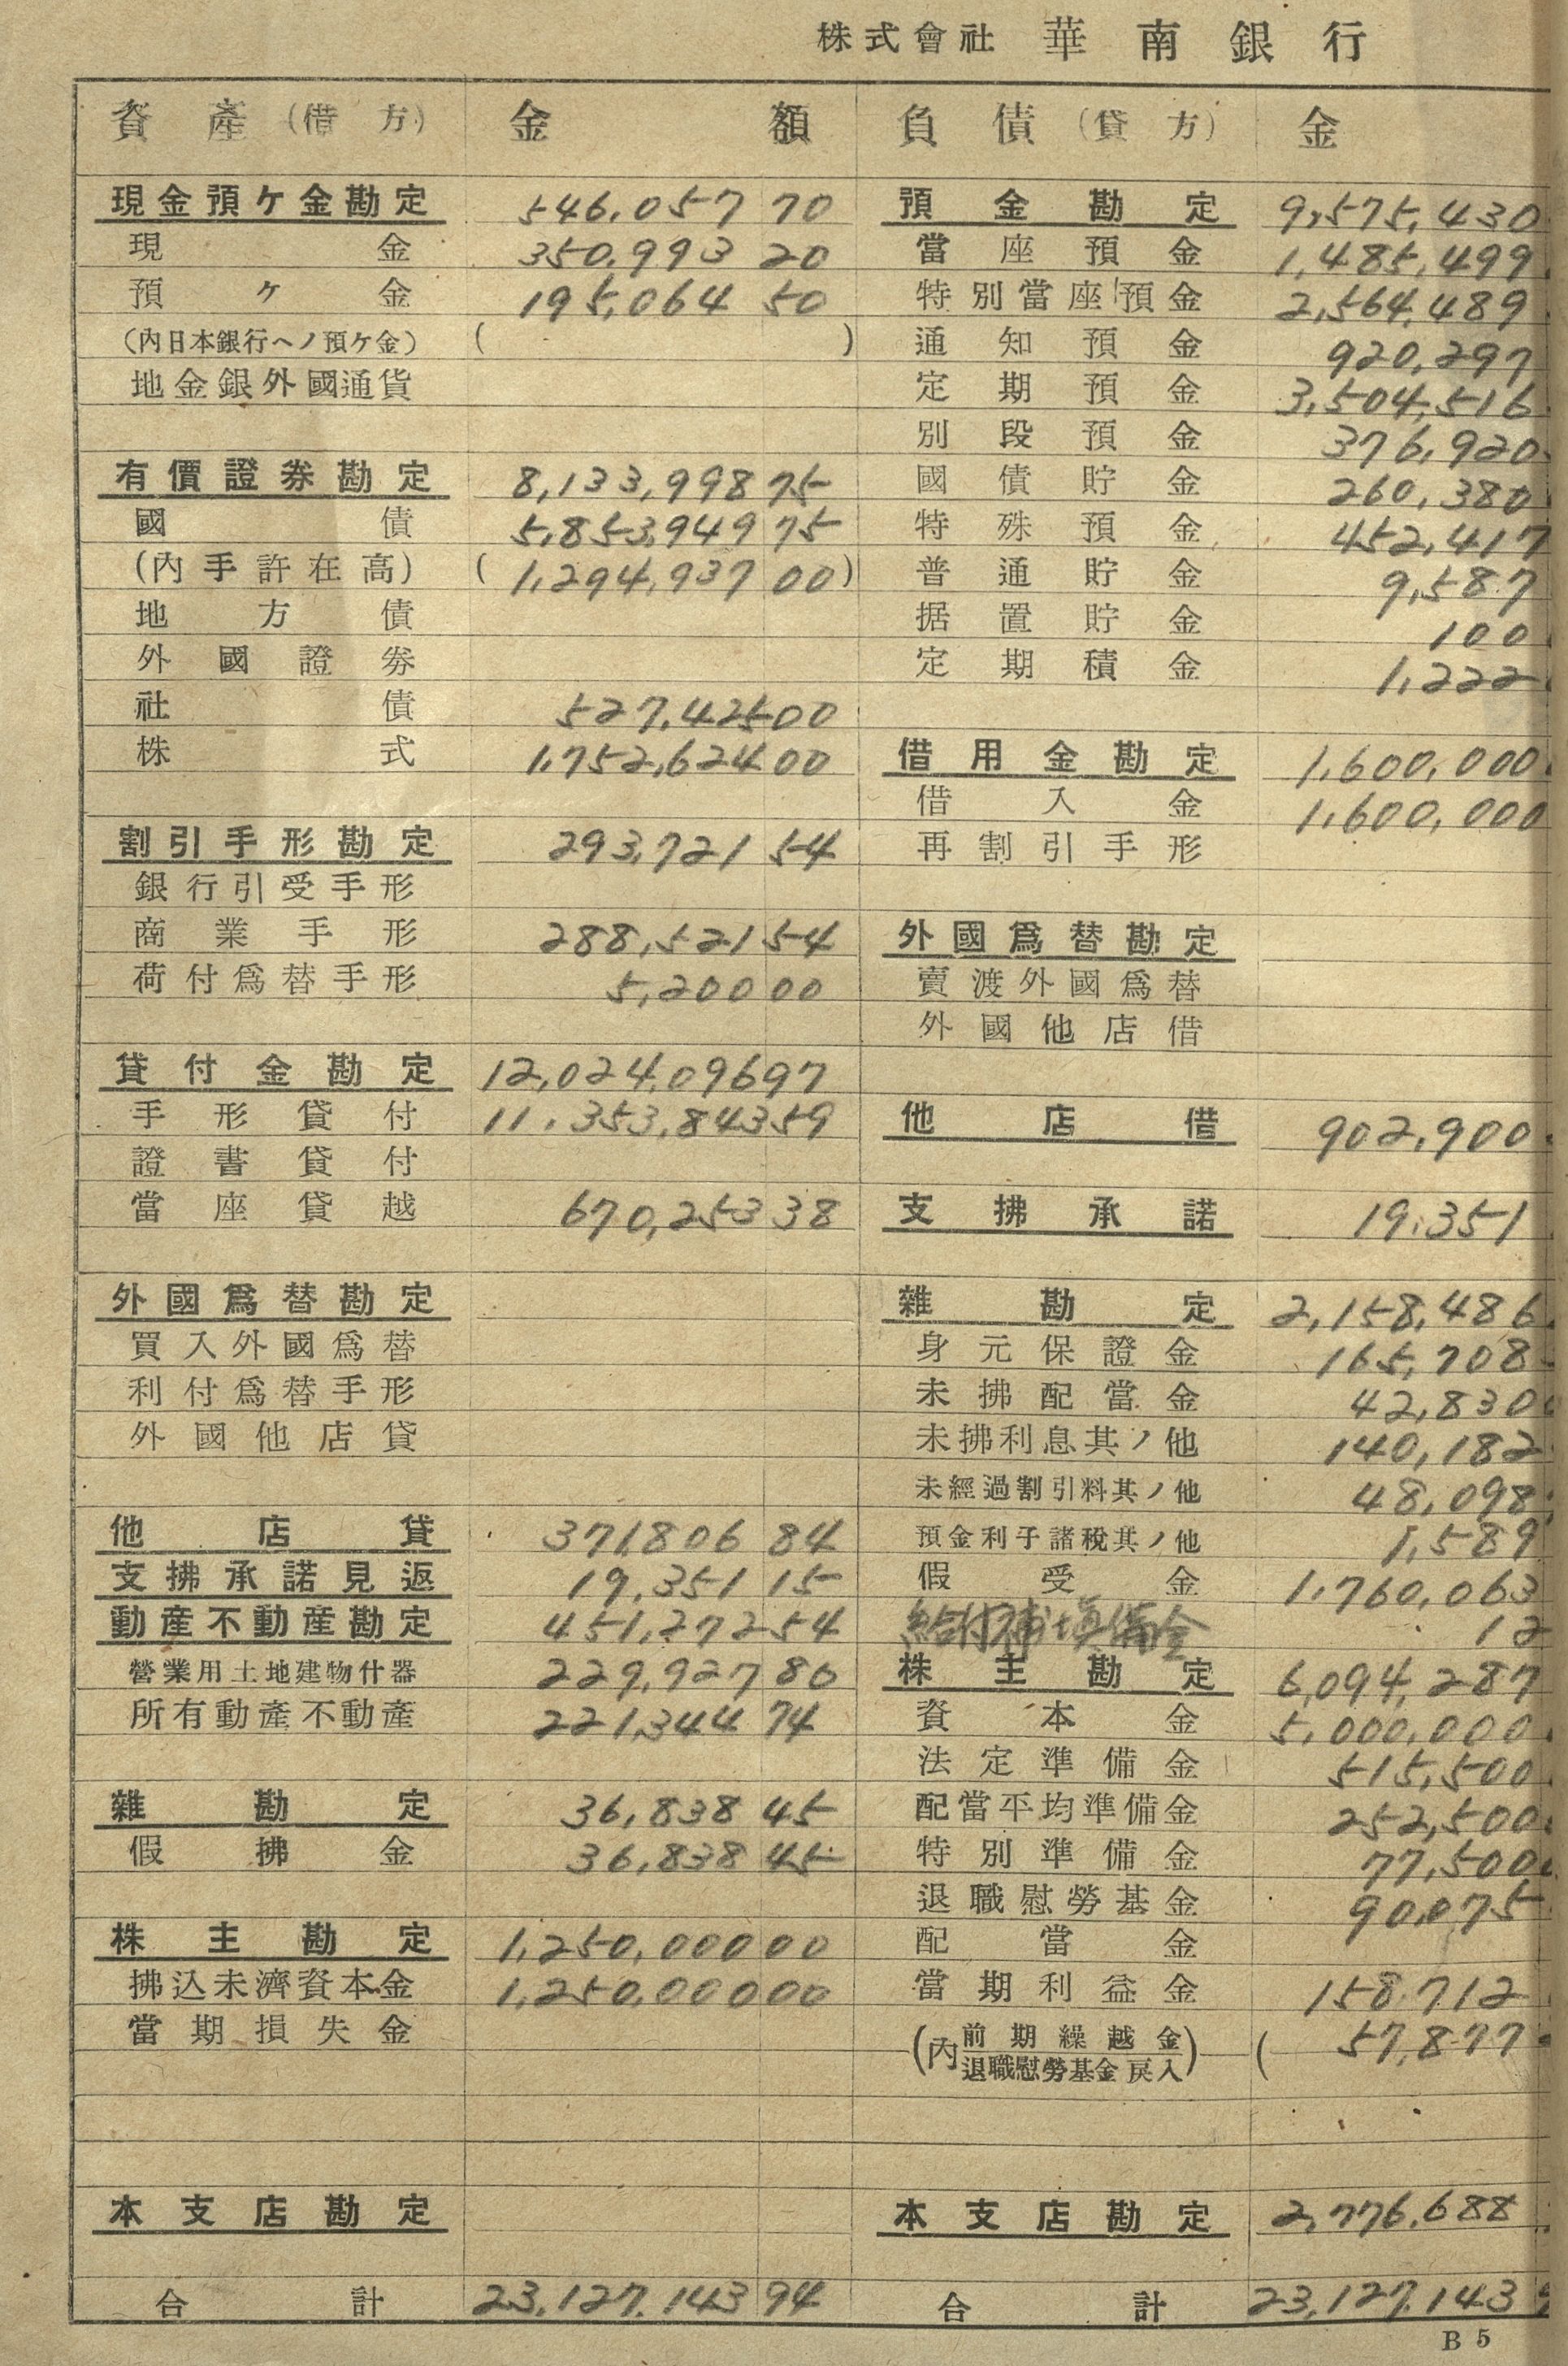 株式會社 華南銀行
資產(借方) 金額 負債(貸方) 金
現金預ヶ金勘定 546,057 70 預金勘定 9,575,430
現金 350,993 20 當座預金 1,485,499
預ヶ金 195,064 50 特別當座預金 2,564,489
(內日本銀行ヘノ預ケ金) ( ) 通知預金 920,297
地金銀外國通貨 定期預金 3,504,516
別段預金 376,920
有價證券勘定 8,133,998 75 國債貯金 260,380
國債 5,853,949 75 特殊預金 452,417
(內手許在高) (1,294,937 00) 普通貯金 9,587
地方債 据置貯金 100
外國證券 定期積金 1,222
社債 527,425 00
株式 1,752,624 00 借用金勘定 1,600,000
借入金 1,600,000
割引手形勘定 293,721 54 再割引手形
銀行引受手形
商業手形 288,521 54 外國爲替勘定
荷付爲替手形 5,200 00 賣渡外國爲替
外國他店借
貸付金勘定 12,024,096 97
手形貸付 11,353,843 59 他店借 902,900
證書貸付
當座貸越 670,253 38 支拂承諾 19,351
外國爲替勘定 雜勘定 2,158,486
買入外國爲替 身元保證金 165,708
利付爲替手形 未拂配當金 42,830
外國他店貸 未拂利息其ノ他 140,182
未經過割引料其ノ他 48,098
他店貸 371,806 84 預金利子諸稅其ノ他 1,589
支拂承諾見返 19,351 15 假受金 1,760,063
動産不動産勘定 451,272 54 給付補填備金 12
營業用土地建物什器 229,927 80 株主勘定 6,094,287
所有動產不動產 221,344 74 資本金 5,000,000
法定準備金 515,500
雜勘定 36,838 45 配當平均準備金 252,500
假拂金 36,838 45 特別準備金 77,500
退職慰勞基金 90,075
株主勘定 1,250,000 00 配當金
拂込未濟資本金 1,250,000 00 當期利益金 158,712
當期損失金 (內前期繰越金 退職慰勞基金戾入) ( 57,877
本支店勘定 本支店勘定 2,776,688
合計 23,127,143 94 合計 23,127,143
B5